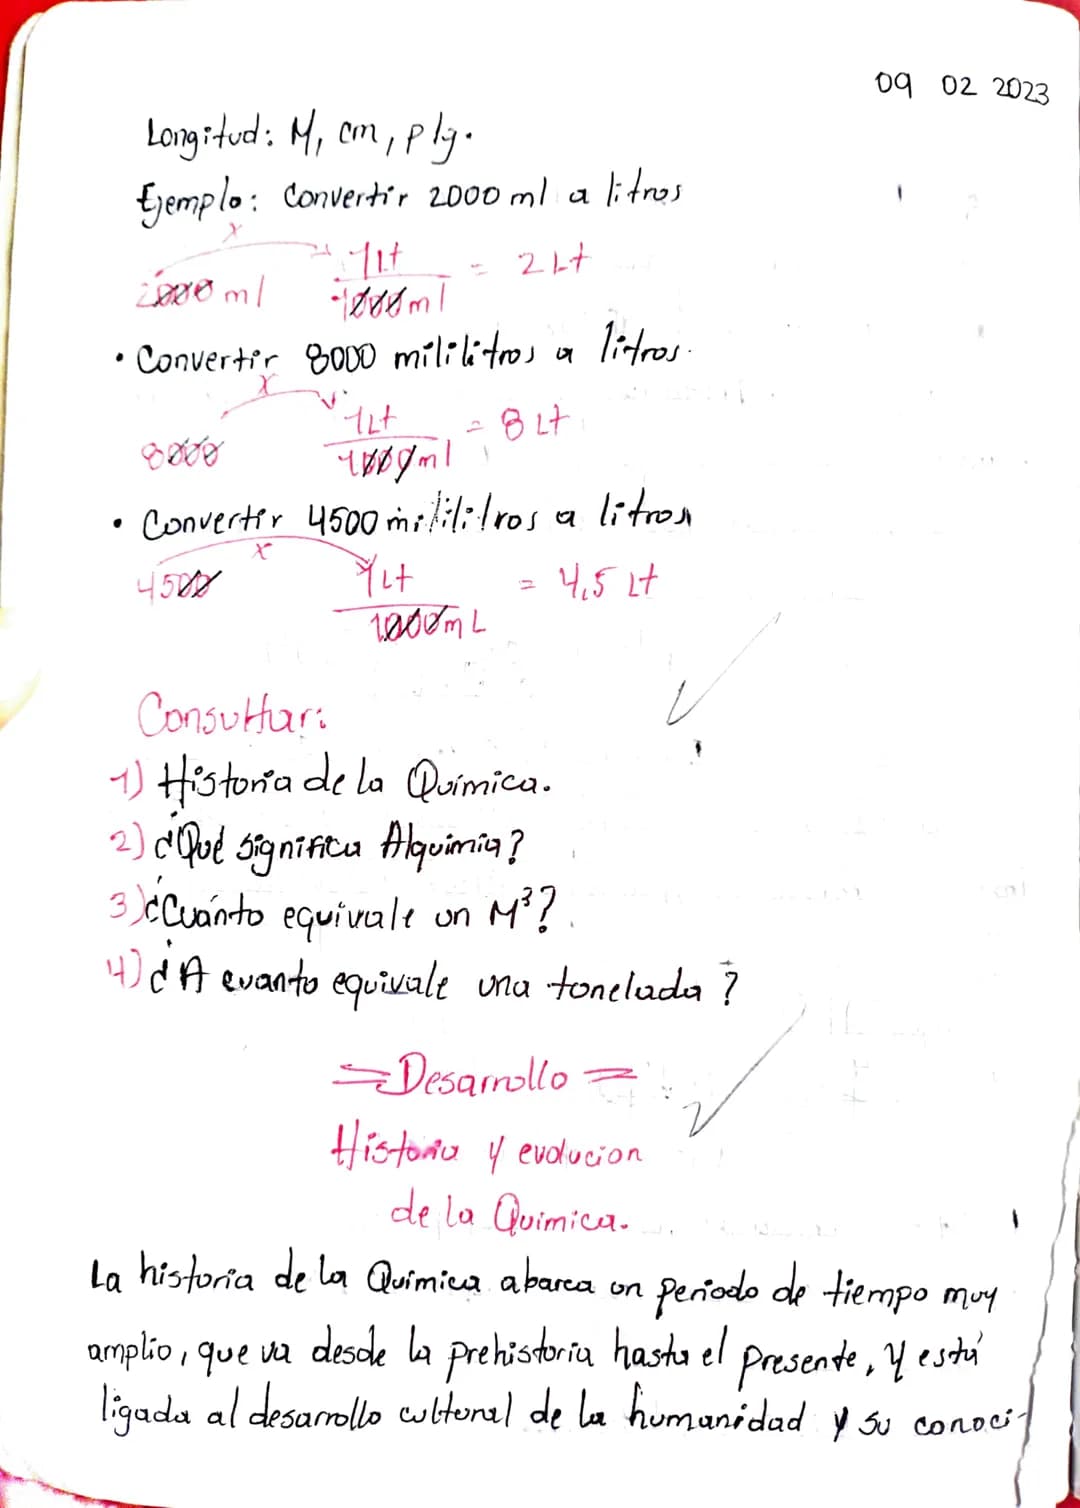 09 02 2023
Longitud: M, cm, plg.
Ejemplo: Convertir 2000 ml a litros
x
2000 ml 1Lt = 2 Lt
1000 ml
• Convertir 8000 mililitros a litros.
x
8000 1Lt = 8 Lt
1000 ml
• Convertir 4500 mililitros a litros
x
4500 1Lt = 4,5 Lt
1000 mL
Consultar:
1) Historia de la Química.
2) ¿Qué significa Alquimia?
3) ¿Cuánto equivale un M³?
4) ¿A cuanto equivale una tonelada?
= Desarrollo =
Historia y evolucion
de la Quimica.
La historia de la Química abarca un periodo de tiempo muy
amplio, que va desde la prehistoria hasta el presente, y está
ligada al desarrollo cultural de la humanidad y su conoci-